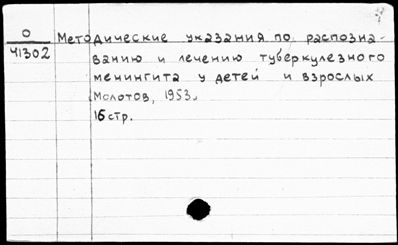 О
41302
Методические указания по распозна-
ванию и лечению туберкулезного
менингита у детей и взрослых
Молотов, 1953.
16 стр.